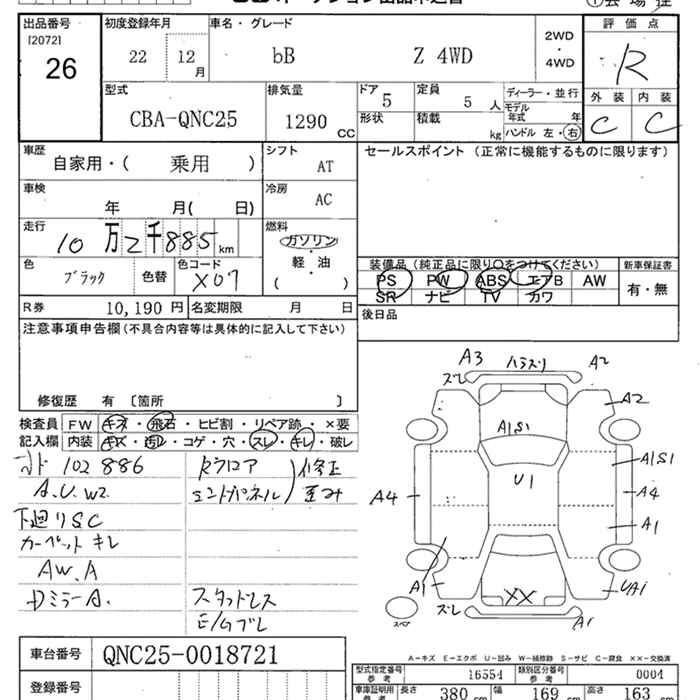 出品番号 初度登録年月 車名・グレード 評価点
[2072]
26 22 12月 bB Z 4WD 2WD・4WD R
外装 内装
C C
型式 排気量 ドア 定員 ディーラー・並行
CBA-QNC25 1290 CC 5 5人 モデル年式 年
形状 積載 kg ハンドル 左・右
車歴 シフト セールスポイント (正常に機能するものに限ります)
自家用・( 乗用 ) AT
車検 冷房
年 月( 日) AC
走行 燃料
10万2千885km ガソリン
軽・油
( )
色 色替 色コード 装備品 (純正品に限り○をつけてください) 新車保証書
ブラック X07 PS PW ABS エアB AW 有・無
SR ナビ TV カワ
R券 10,190円 名変期限 月 日 後日品
注意事項申告欄(不具合内容等は具体的に記入して下さい)
修復歴 有 〔箇所 〕
検査員 FW キズ・飛石・ヒビ割・リペア跡・×要
記入欄 内装 キズ・汚レ・コゲ・穴・スレ・キレ・破レ
102886
A.U.W2.
エンドパネル 修正
歪み
下廻りSC
カーペット キレ
AW.A
ミラーA.
スタッドレス
E/Gブレ
A3 A2
A2
A1S1
U1
A1S1
A4 A4
A1
A1 XX UA1
A1
車台番号 QNC25-0018721
登録番号
A-キズ E-エクボ U-凹み W-補修跡 S-サビ C-腐食 ××-交換済
型式指定番号 参考 16554 類別区分番号 参考 0004
車庫証明用 参考 長さ 380 cm 幅 169 cm 高さ 163 cm